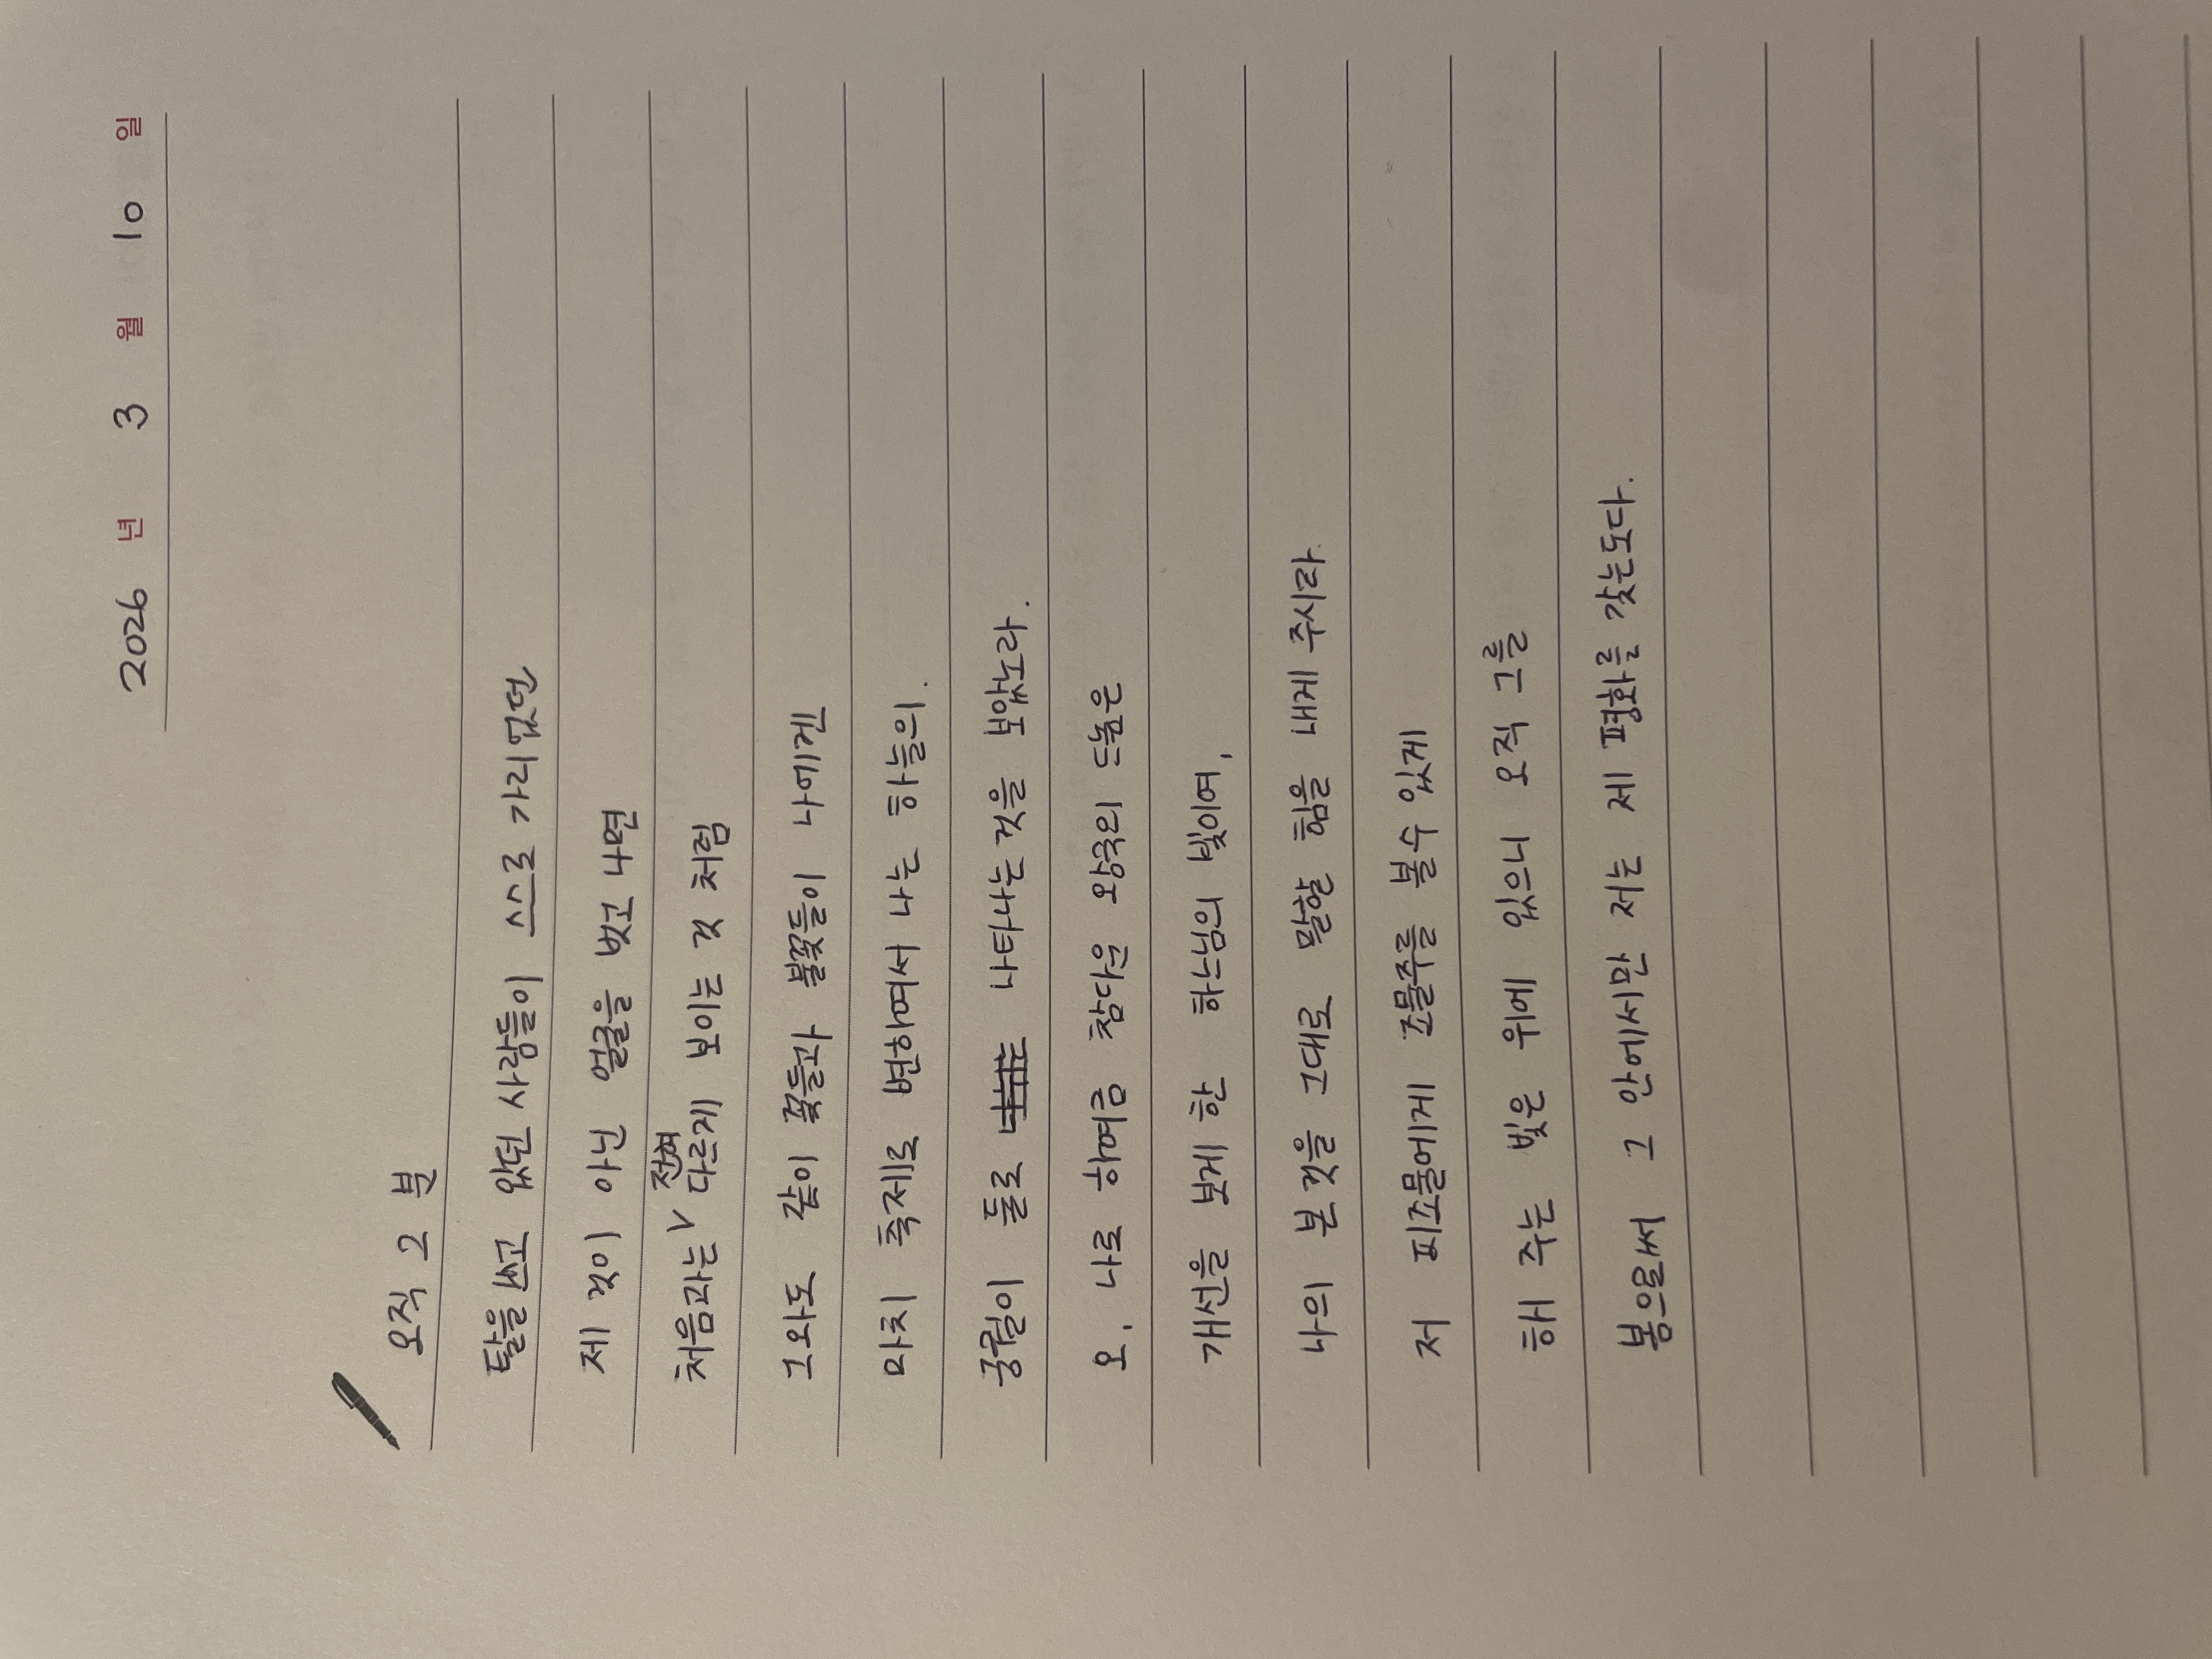 2026 년 3 월 10 일
오직 2 분
탈을 쓰고 있던 사람들이 스스로 가리었던
제 것이 아닌 얼굴을 벗고 나면
처음과는 ∨ 전혀 다르게 보이는 것 처럼
그와도 같이 꽃들과 불꽃들이 나에겐
마치 축제로 변하여서 나는 하늘의.
궁궐이 둘로 나타나는 것을 보았노라.
오, 나로 하여금 참다운 왕국의 드높은
개선을 보게 한 하느님의 빛이여,
나의 본 것을 그대로 말할 힘을 내게 주시라.
저 피조물에게 조물주를 볼 수 있게
해 주는 빛은 위에 있으니 오직 그를
봄으로써 그 안에서만 저는 제 평화를 갖는도다.